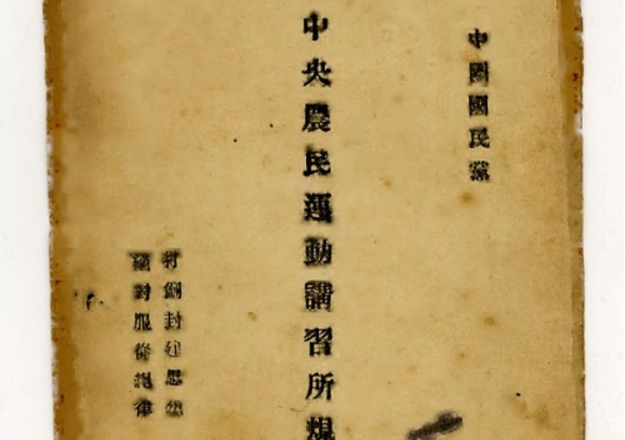 中國國民黨
中央農民運動講習所規
打倒封建思想
絕對服從紀律